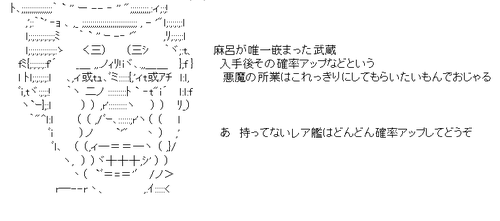 麻呂が唯一嵌まった武蔵
入手後その確率アップなどという
悪魔の所業はこれっきりにしてもらいたいもんでおじゃる
あ　持ってないレア艦はどんどん確率アップしてどうぞ